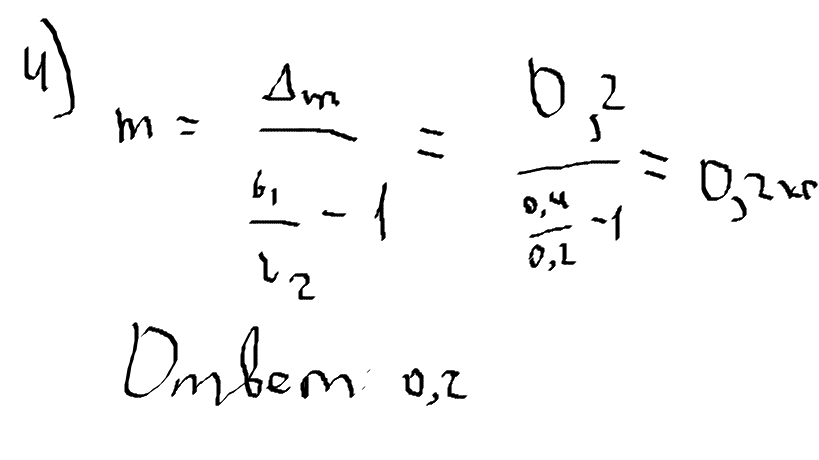 4) m = Δm / (l₁ / l₂ - 1) = 0,2 / (0,4 / 0,2 - 1) = 0,2 кг
Ответ: 0,2